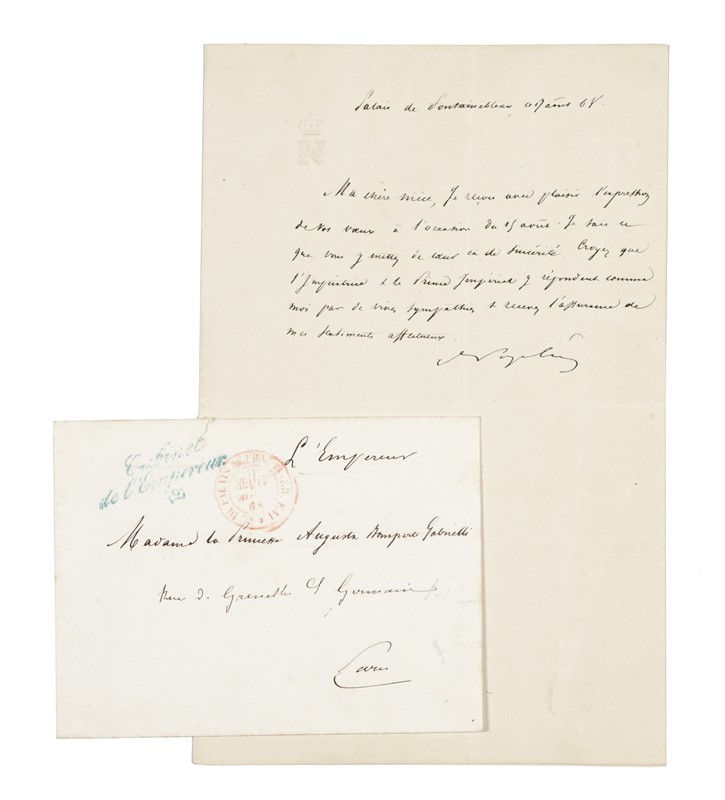 Palais de Fontainebleau, ce 17 août 68.
N
Ma chère nièce, Je reçois avec plaisir l'expression
de vos vœux à l'occasion du 15 août. Je sais ce
que vous y mettez de cœur et de sincérité. Croyez que
l'Impératrice & le Prince Impérial y répondent comme
moi par de vives sympathies & recevez l'assurance de
mes sentiments affectueux.
Napoléon
Cabinet
de l'Empereur
L'Empereur
Madame la Princesse Augusta Bonaparte Gabrielli
Rue de Grenelle St Germain
Paris